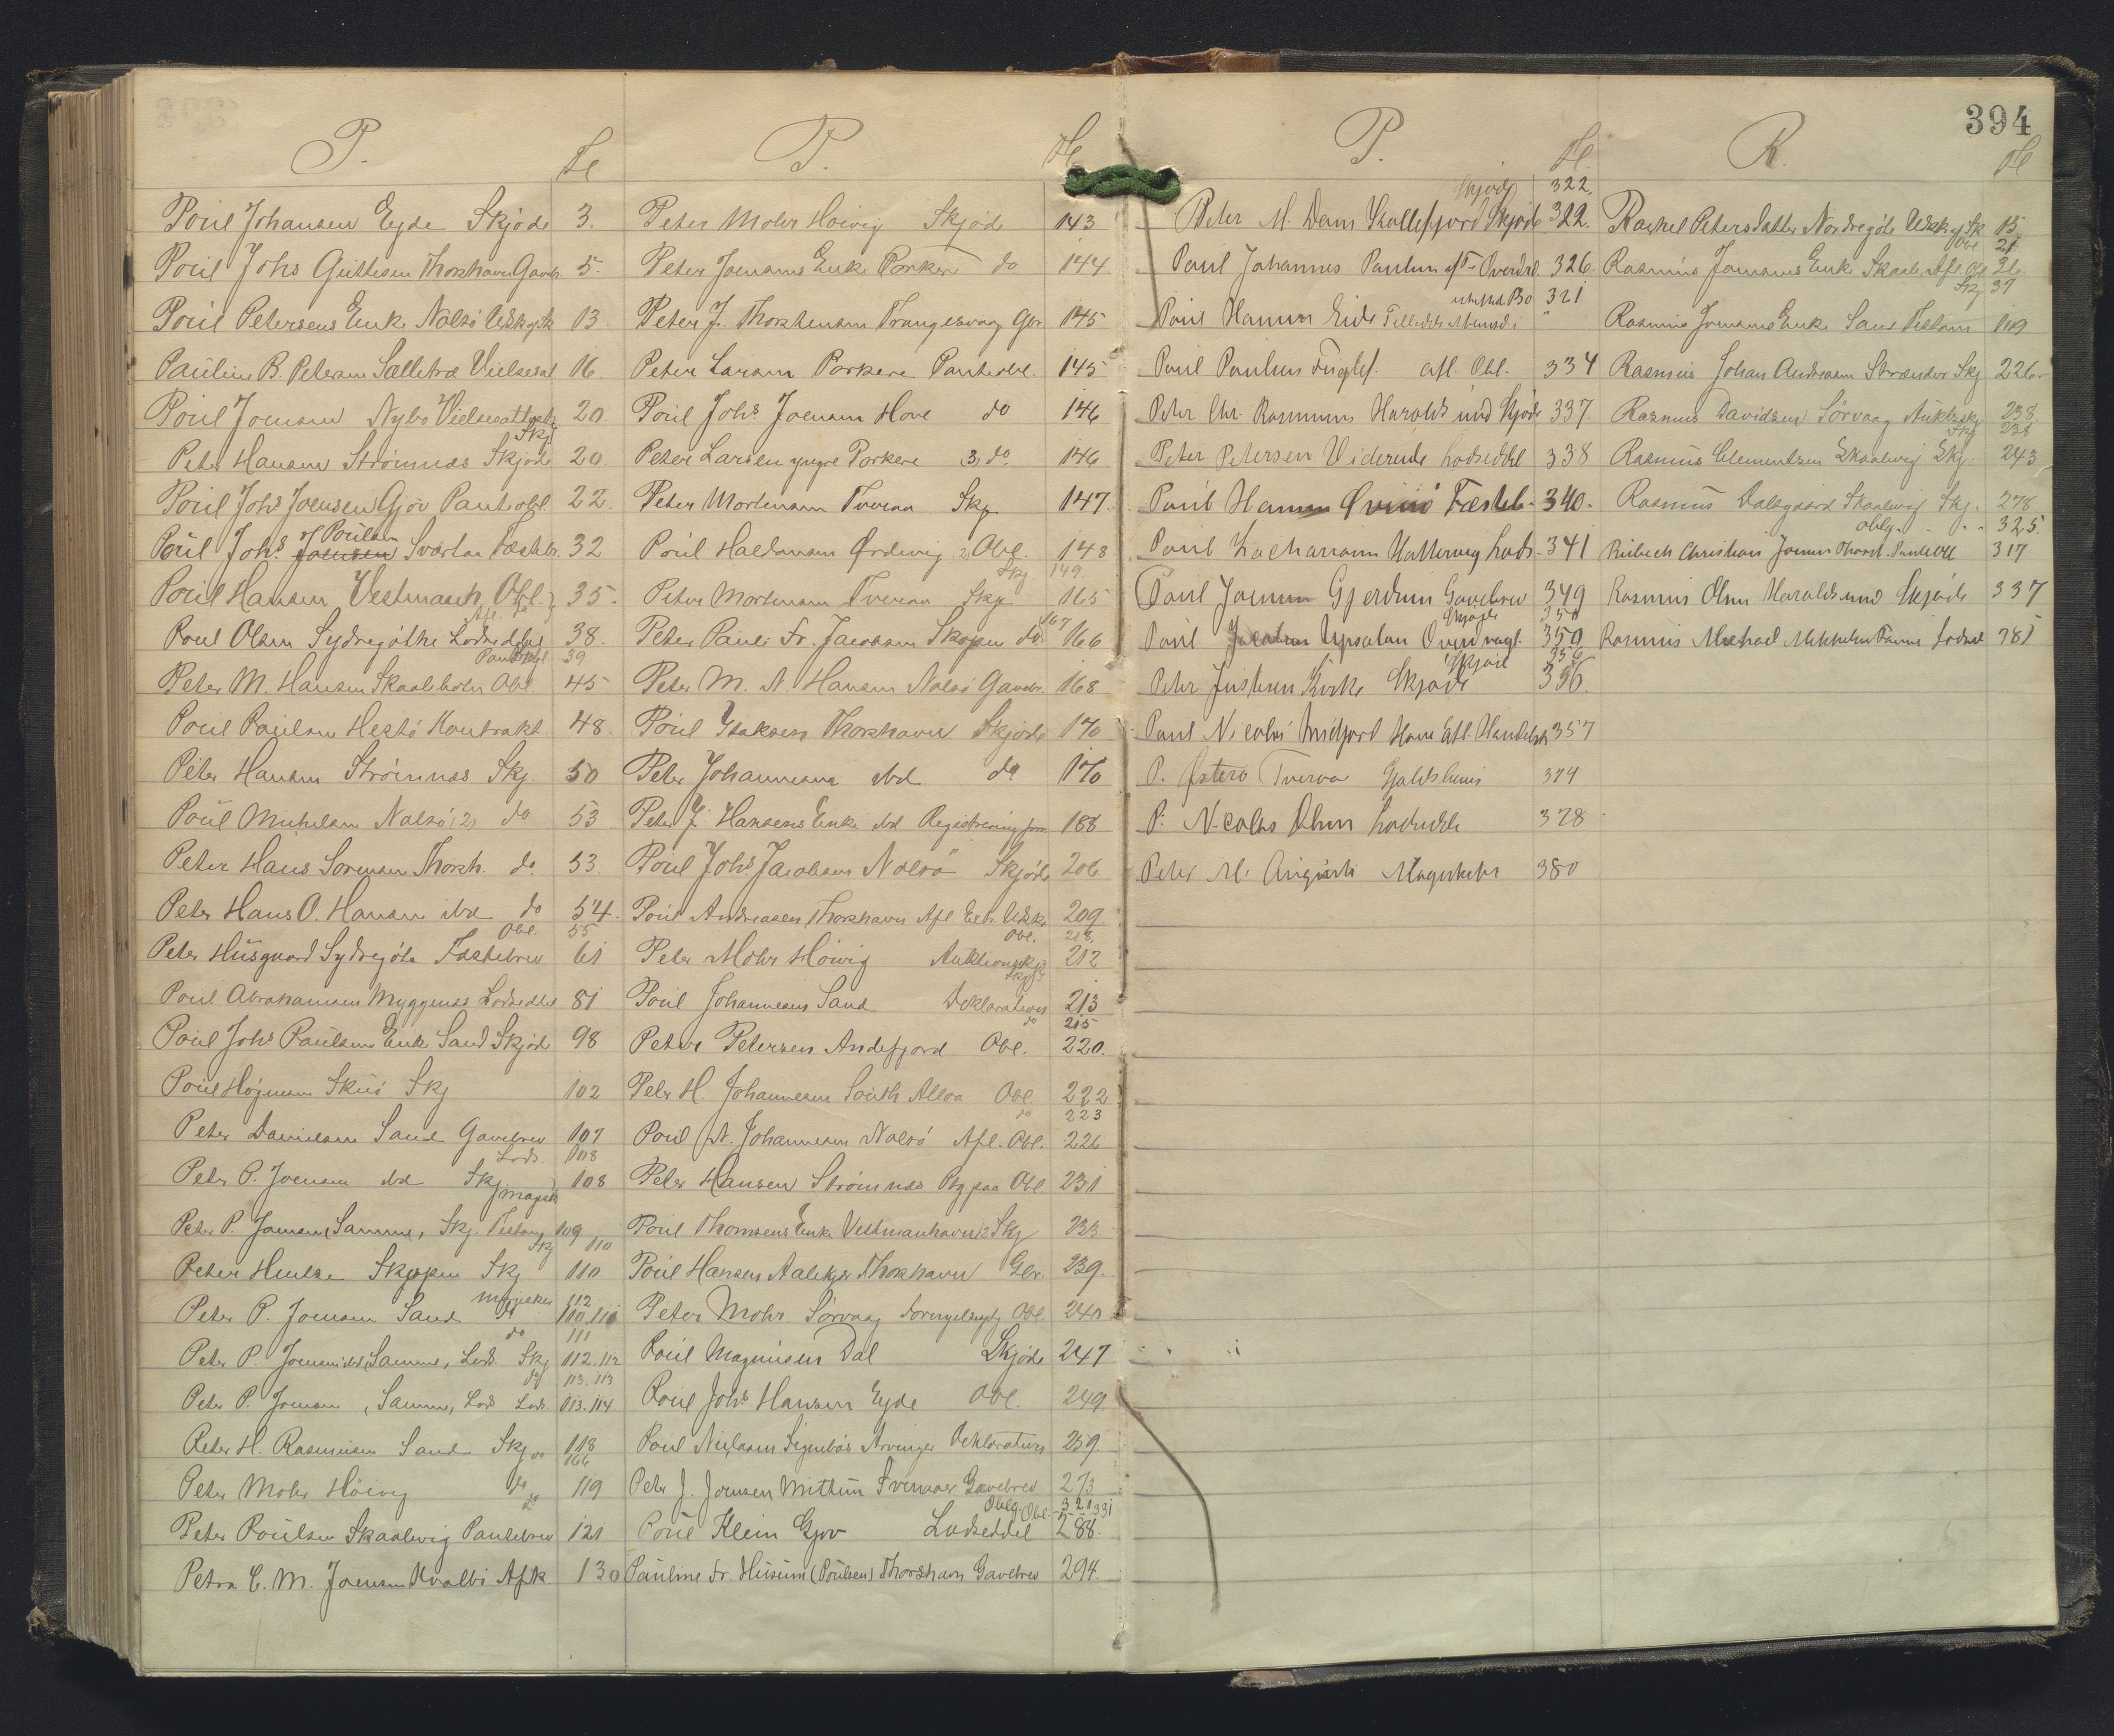 394
P.
Fol
Poul Johansen Eyde Skjöde 3.
Poul Johs Guttesen Thorshavn Gaveb. 5.
Poul Petersens Enke Nolsö Udskr. Sk 13.
Pauline B. Petersen Selletræ Vielsesat 16.
Poul Joensen Nybo Vielsesattest 20.
Skj
Peter Hansen Strömnæs Skjöde 20
Poul Johs Joensen Gjov Panteobl. 22.
Poul Johs Joensen Poulsen Svartaa Fæsteb. 32
Poul Hansen Vestmanh. Obl. 35.
Poul Olsen Sydregöthe Lodseddel 38.
39
Peter M. Hansen Skaaleholm Obl. 45
Poul Poulsen Hestö Kontrakt 48.
Peter Hansen Strömnæs Skj. 50
Poul Michelsen Nolsö (2) do 53
Peter Hans Sorensen Thorsh. do 53.
Peter Hans O. Hansen ibd do 54.
Obl. 55
Peter Husgaard Sydregöte Fæstebrev 61
Poul Abrahamsen Myggenæs Lodseddel 81
Poul Johs Poulsens Enke Sand Skjöde 98
Poul Höjnesen Skuö Skj 102
Peter Danielsen Sand Gavebrev 107
Lods. 108
Peter P. Joensen ibd Skj 108
Magesk
Peter P. Joensen (Samme, Skj. Testam 109
Skj 110
Peter Hentze Skopen Skj 110
Mageskes 112
Peter P. Joensen Sand do 110.110
do 111
Peter P. Joensen ibd (Samme, Lods. Skj 112.112
do 113.113
Peter P. Joensen (Samme, Lods Lods. 113.114
Peter H. Rasmussen Sand Skj 118
166
Peter Mohr Höivig do 119
do
Peter Poulsen Skaalevig Pantebrev 121
Petra C. M. Joensen Kvalbö Afk. 130
P.
Fol
Peter Mohr Hoivig Skjöde 143
Peter Joensens Enke Porkere do 144
Peter J. Thorsteinson Trangisvaag Gbr 145
Peter Larsen Porkere Panteobl. 145
Poul Johs Joensen Hove do 146
Peter Larsen yngre Porkere 3 do 146
Peter Mortensen Tveraa Skj 147
Poul Haldansen Ördevig 2 Obl. 148
Skj 149.
Peter Mortensen Tveraa Skj 165
167
Peter Pauli Fr. Jacobsen Skopen do 166
Peter M. N. Hansen Nolsö Gaveb. 168
Poul Isaksen Thorshavn Skjöde 170
Peter Johannesen ibd do 170
Peter J. Hansens Enke ibd Registrering 188
Poul Johs Jacobsen Nolsö Skjöde 206
Poul Andreasen Thorshavn Afl Extr. Udskr. 209
Obl. 218.
Peter Mohr Höivig Auktionsskj. 212
Skj
Poul Johannesen Sand Deklaration 213
do 215
Peter Petersen Andefjord Obl. 220.
Peter H. Johannesen South Alloa Obl. 222
do 223
Poul N. Johannesen Nolsö Afl. Obl. 226
Peter Hansen Strömnæs Ptg paa Obl. 231
Poul Thomsens Enke Vestmanhavn 2 Skj 233
Poul Hansen Aalekjær Thorshavn Gbr. 239.
Peter Mohr Sorvaag Fornyelsesptg Obl. 240
Poul Magnusen Dal Skjöde 247
Poul Johs Hansen Eyde Obl. 249.
Poul Niclasen Signebös Arvinger Deklaration 259.
Peter J. Joensen Mittun Svinaaer Gavebrev 273
Oblg. Obl. 321 331
Poul Klein Gjov Lodseddel 288.
Pauline Fr. Husum (Poulsen) Thorshavn Gavebrev 294.
P.
Fol
Skjöde 322.
Peter M. Dam Skaallefjord Skjöde 322.
Poul Johannes Paulsen Overdr. 326.
321
Poul Hansen Eide
Poul Poulsen Fuglef. afl. Obl. 334
Peter Chr. Rasmussen Haraldssund Skjöde 337.
Peter Petersen Videreide Lodseddel 338
Poul Hansen Qvivö Fæsteb. 340.
Poul Zachariasen Hattervig Lods. 341
Poul Joensen Gjerdum Gavebrev 349
Skjöde 350
Poul Jacobsen Upsalum Overdragt. 350
Skjöde 356
Peter Justesen Kirke Skjöde 356.
Poul Nicolai Midfjord Hove Afl. Handels 357
P. Österö Tveraa Gjeldsbevis 374
P. Nicolas Olsen Lodseddel 378
Peter M. Mageskifte 380
R.
Fol
Rachel Petersdatter Nordregöte Udskr. Sk 15
Obl. 21.
Rasmus Joensens Enke Skaale Afl. Obl 26.
Skj 37
Rasmus Joensens Enke Sand Testam 119
Rasmus Johan Andreasen Strænder Skj 226.
Rasmus Davidsen Sörvaag Auktsskj. 238.
Skj 238
Rasmus Clementsen Skaalevig Skj. 243
Rasmus Dalsgaard Skaalevig Skj. 278
Oblg. 325.
Rubech Christian Joensen Thorsh. Panteobl 317
Rasmus Olsen Haraldssund Skjöde 337
Rasmus Michael Mikkelsen Famm Lodsed 381